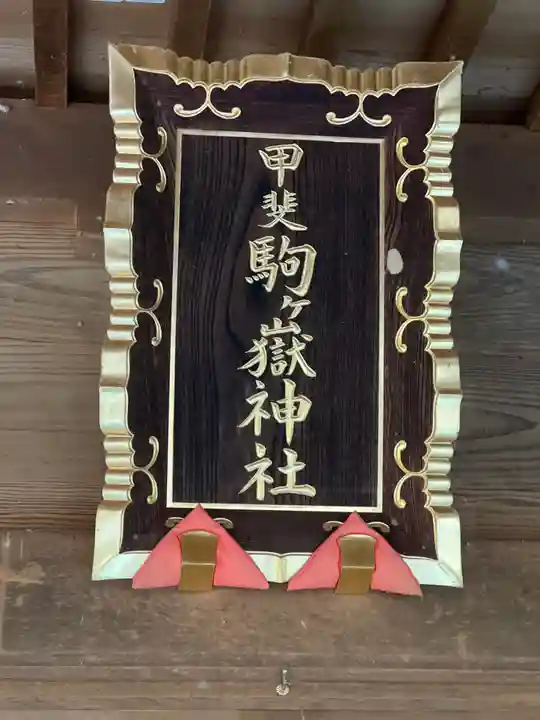 甲斐駒ヶ嶽神社